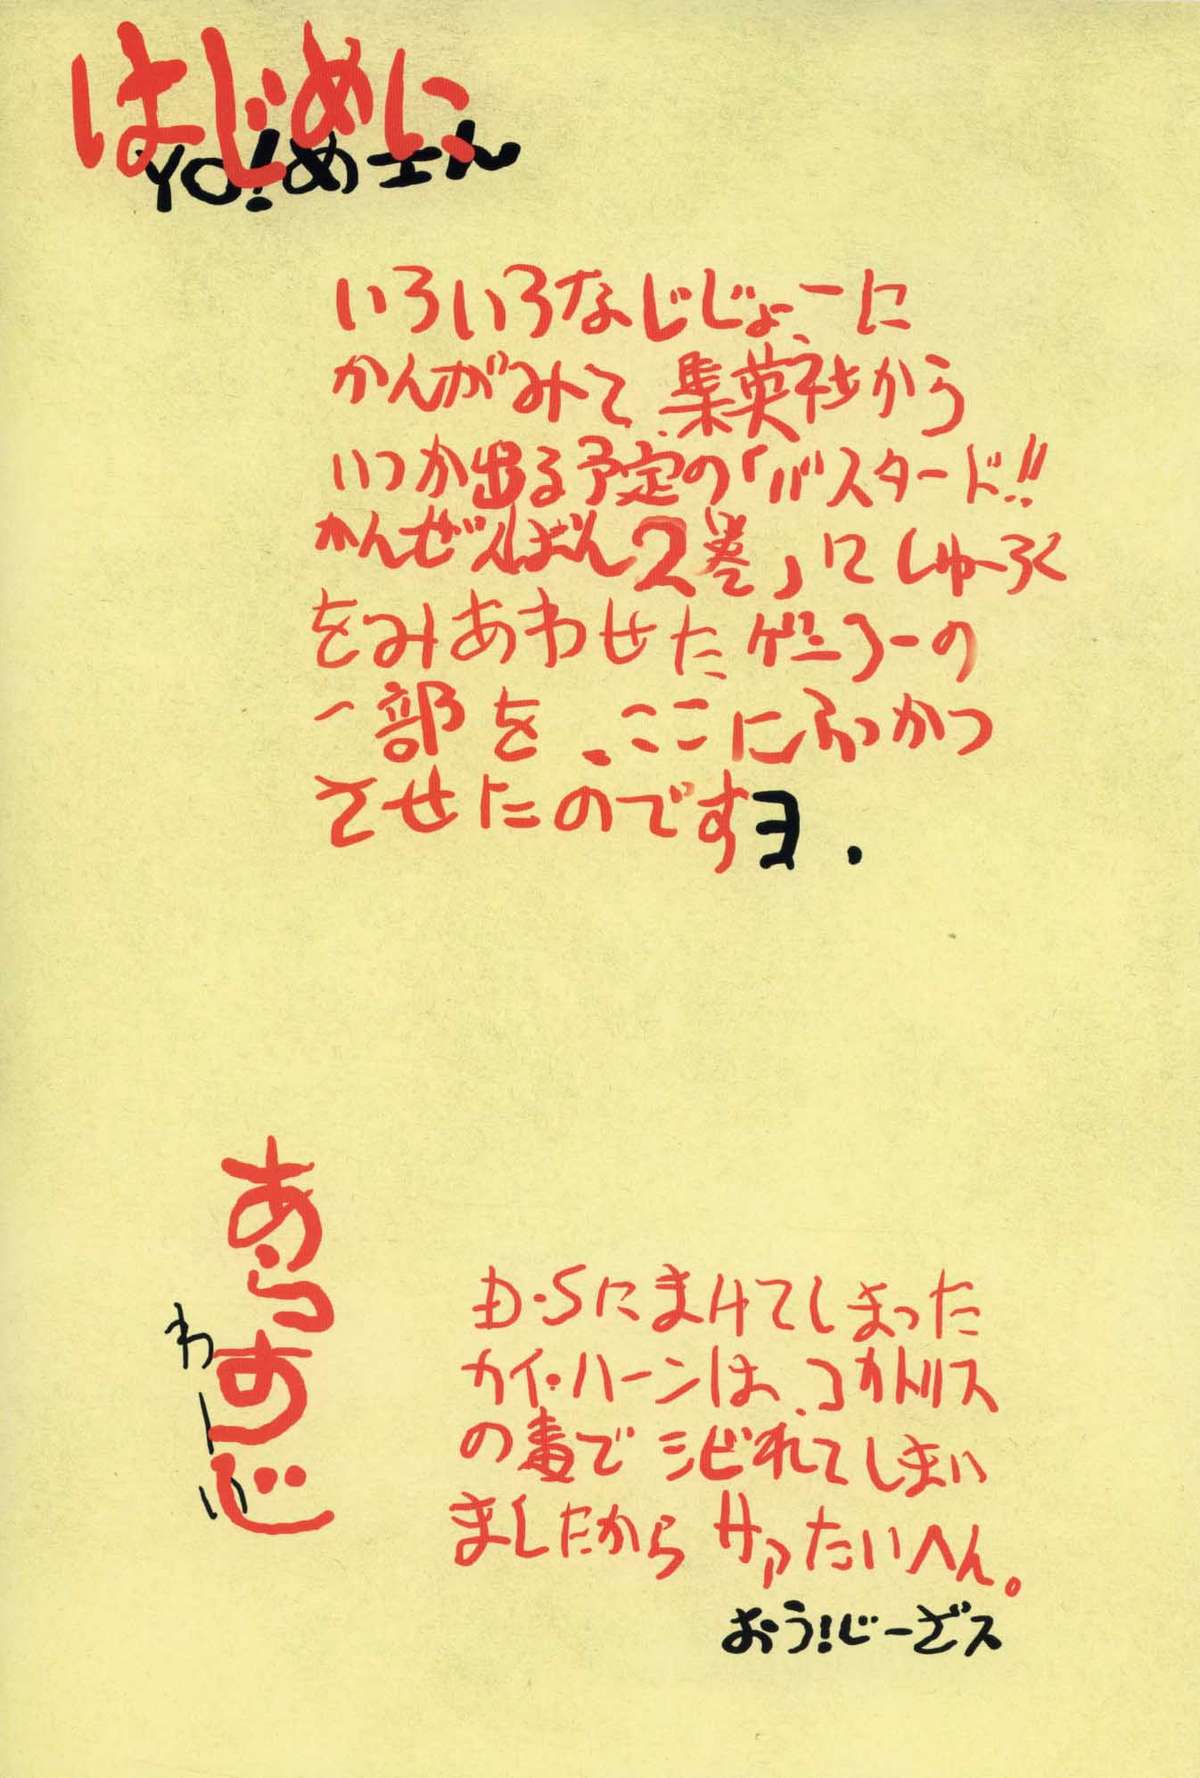 はじめに
YO!めーん
いろいろなじじょーに
かんがみて集英社から
いつか出る予定の「バスタード!!
かんぜんばん2巻」にしゅーろく
をみあわせたゲンコーの
一部を、ここにふっかつ
させたのですヨ.
あらすじ
わーい
D・Sにまけてしまった
カイ・ハーンは、コカトリス
の毒でシビれてしまい
ましたからサァたいへん。
おう!じーざス